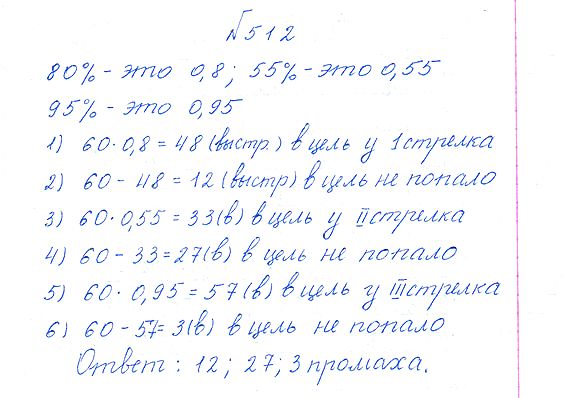 №512
80% - это 0,8; 55% - это 0,55
95% - это 0,95
1) 60·0,8=48(выстр.) в цель у I стрелка
2) 60-48=12(выстр) в цель не попало
3) 60·0,55=33(в) в цель у II стрелка
4) 60-33=27(в) в цель не попало
5) 60·0,95=57(в) в цель у III стрелка
6) 60-57=3(в) в цель не попало
Ответ: 12; 27; 3 промаха.